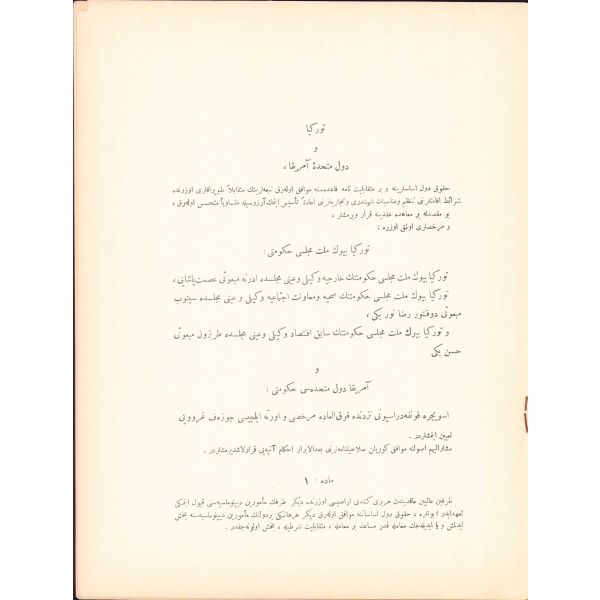 توركيا
و
دول متحدهٔ آمريقا ،
حقوق دول اساسلرينه و بر متقابليت تامه قاعده‌سنه موافق اوله‌رق تبعه‌لرينك متقابلاً طوپراقلرى اوزرنده
شرائط اقامتلرينى تنظيم و مناسبات شهبندرى و تجاريه‌لرينى اعادةً تأسيس ايتمك آرزوسيله متساوياً متحسس اوله‌رق ،
بو مقصدله بر معاهده عقدينه قرار ويرمشلر ،
و مرخصلرى اولمق اوزره :
توركيا بيوك ملت مجلسى حكومتى :
توركيا بيوك ملت مجلسى حكومتنك خارجيه وكيلى و عينى مجلسده ادرنه مبعوثى عصمت پاشايى ،
توركيا بيوك ملت مجلسى حكومتنك صحيه و معاونت اجتماعيه وكيلى و عينى مجلسده سينوب
مبعوثى دوقتور رضا نور بكى ،
و توركيا بيوك ملت مجلسى حكومتنك سابق اقتصاد وكيلى و عينى مجلسده طربزون مبعوثى
حسن بكى
و
آمريقا دول متحده‌سى حكومتى :
اسويچره قونفه‌دراسيونى نزدنده فوق‌العاده مرخصى و اورته ايلچيسى جوزه‌ف غرووبى
تعيين ايتمشلردر .
مشاراليهم اصولنه موافق كوريلن صلاحيتنامه‌لرينى بعدالابراز احكام آتيه‌يى قرارلاشديرمشلردر .
ماده : ١
طرفين عاليين عاقديندن هربرى كندى اراضيسى اوزرنده ديكر طرفك مأمورين ديپلوماسيه‌سنى قبول ايتمكى
تعهد ايدر ؛ بونلره ، حقوق دول اساساتنه موافق اوله‌رق ديكر هرهانكى بر دولتك مأمورين ديپلوماسيه‌سنه بخش
ايدلمش و يا ايديله‌جك معامله قدر مساعد بر معامله ، متقابليت شرطيله ، بخش اولونه‌جقدر .